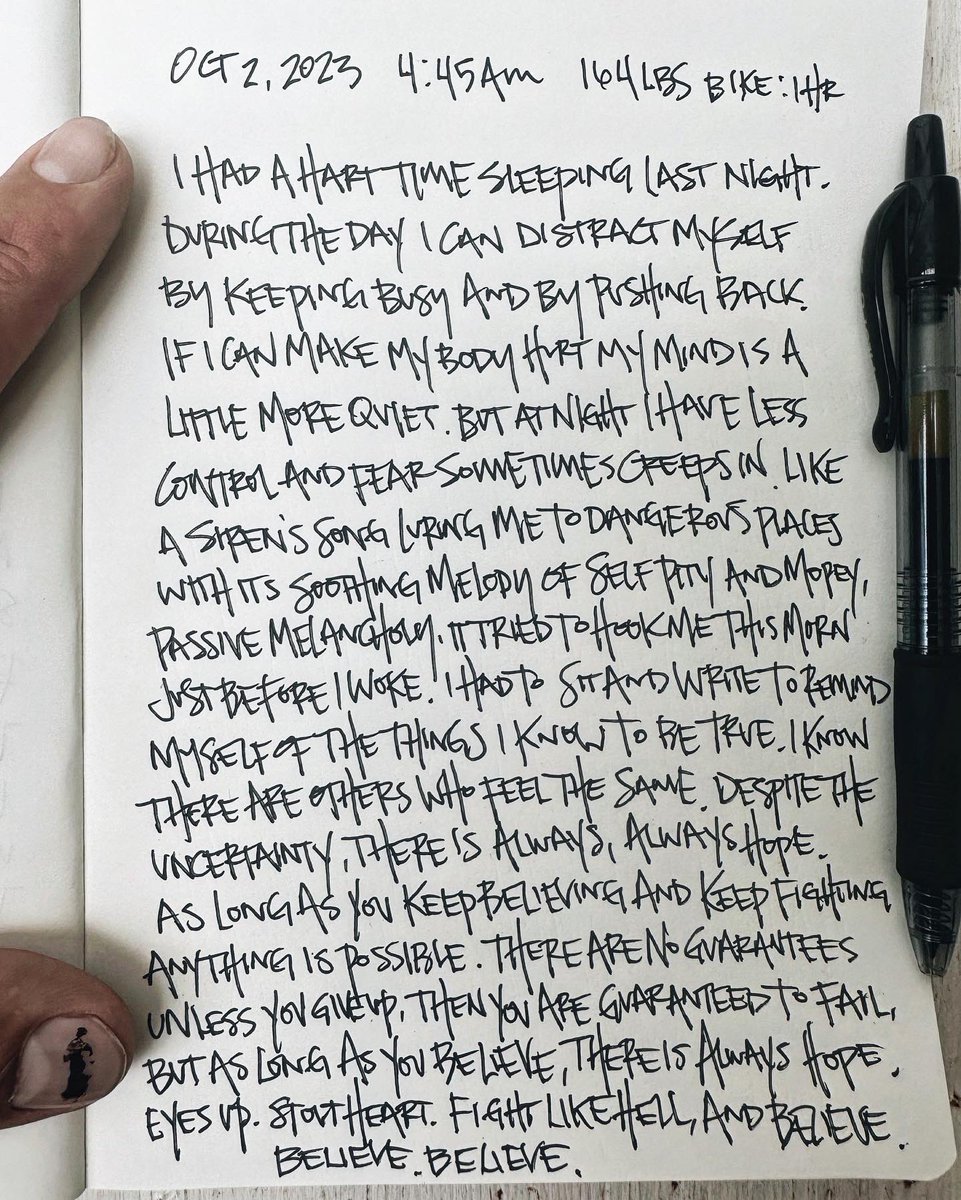 OCT 2, 2023 4:45AM 164LBS BIKE:1HR
I HAD A HART TIME SLEEPING LAST NIGHT.
DURING THE DAY I CAN DISTRACT MYSELF
BY KEEPING BUSY AND BY PUSHING BACK.
IF I CAN MAKE MY BODY HURT MY MIND IS A
LITTLE MORE QUIET. BUT AT NIGHT I HAVE LESS
CONTROL AND FEAR SOMETIMES CREEPS IN. LIKE
A SIREN'S SONG LURING ME TO DANGEROUS PLACES
WITH ITS SOOTHING MELODY OF SELF PITY AND MOPEY,
PASSIVE MELANCHOLY. IT TRIED TO HOOK ME THIS MORN
JUST BEFORE I WOKE. I HAD TO SIT AND WRITE TO REMIND
MYSELF OF THE THINGS I KNOW TO BE TRUE. I KNOW
THERE ARE OTHERS WHO FEEL THE SAME. DESPITE THE
UNCERTAINTY, THERE IS ALWAYS, ALWAYS HOPE.
AS LONG AS YOU KEEP BELIEVING AND KEEP FIGHTING
ANYTHING IS POSSIBLE. THERE ARE NO GUARANTEES
UNLESS YOU GIVE UP, THEN YOU ARE GUARANTEED TO FAIL,
BUT AS LONG AS YOU BELIEVE, THERE IS ALWAYS HOPE.
EYES UP. STOUT HEART. FIGHT LIKE HELL, AND BELIEVE.
BELIEVE. BELIEVE.